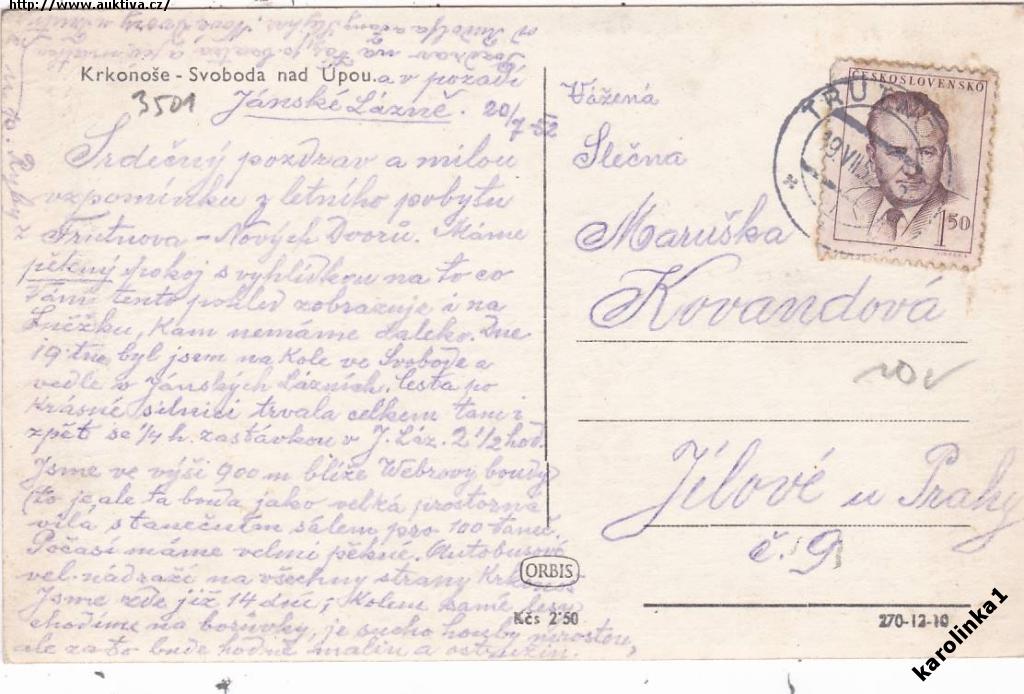 http://www.auktiva.cz/
Krkonoše - Svoboda nad Úpou. a v pozadí
3501
Jánské Lázně. 20/7-52
Srdečný pozdrav a milou
vzpomínku z letního pobytu
Trutnova - Nových Dvorů. Máme
pěkný pokoj s vyhlídkou na to co
Vám tento pohled zobrazuje, i na
Sněžku, kam nemáme daleko. Dne
19. tne byl jsem na kole ve Svobodě a
vedle v Jánských Lázních. Cesta po
krásné silnici trvala celkem tam i
zpět se 1/4 h. zastávkou v J. Láz. 2 1/2 hod.
Jsme ve výši 900 m blíže Webrovy boudy
(to je ale ta bouda jako velká prostorná
vila s tanečním sálem pro 100 tanč.
Počasí máme velmi pěkné. Autobusové
vel. nádraží na všechny strany
Jsme zde již 14 dní; kolem samé lesy
chodíme na borůvky, je sucho houby nerostou,
ale zato bude hodně malin a ostružin.
Vážená
Slečna
Maruška
Kovandová
Jílové u Prahy
č. 9
ČESKOSLOVENSKO
1.50
TRUTN
19.VII.5
ORBIS
Kčs 2'50
270-12-10
karolinka1